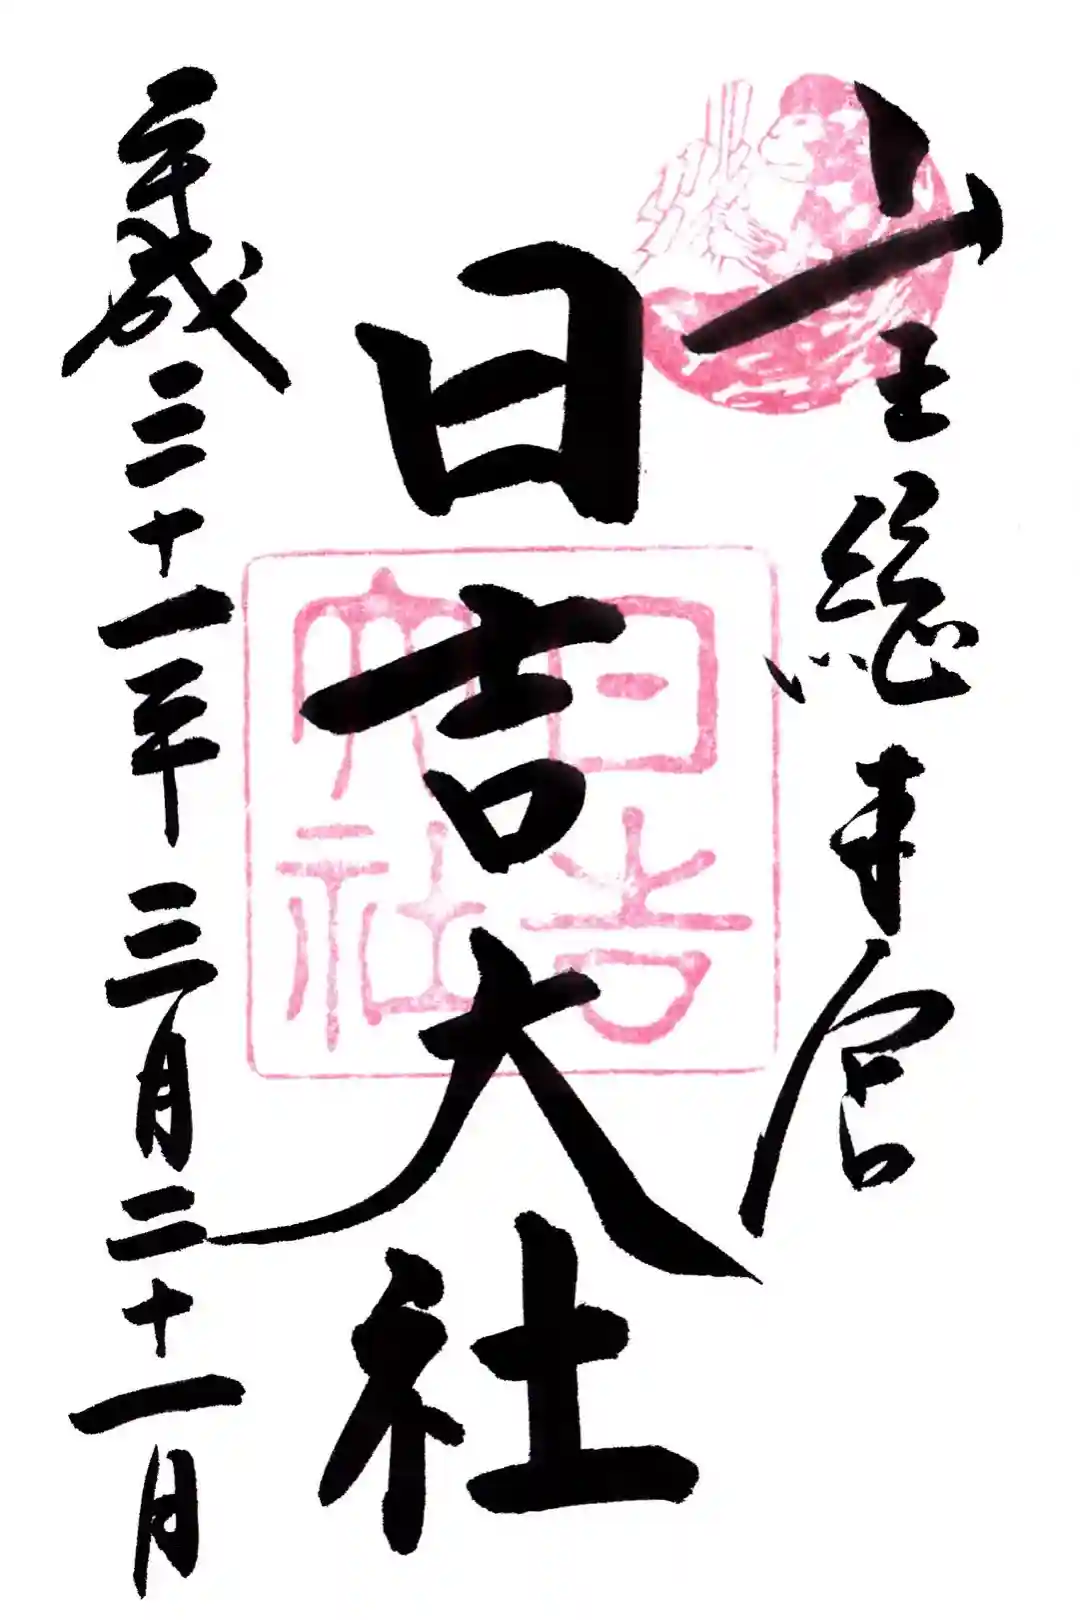 山王総本宮
日吉大社
日吉大社
平成三十一年三月二十一日